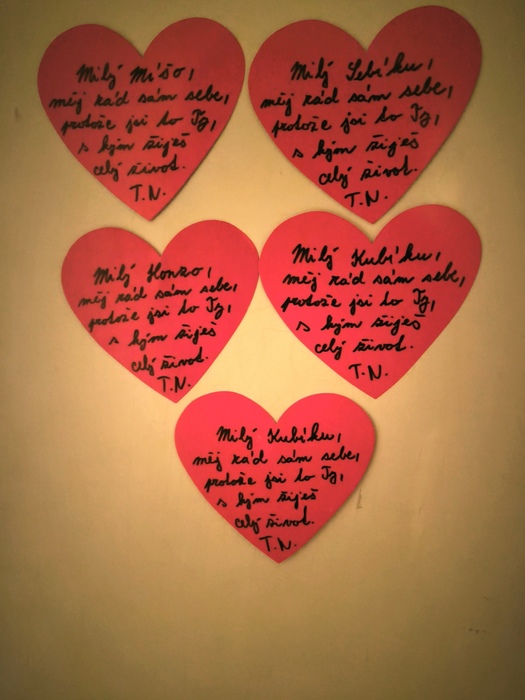 Milý Míšo,
měj rád sám sebe,
protože jsi to Ty,
s kým žiješ
celý život.
T.N.
Milý Sebíku,
měj rád sám sebe,
protože jsi to Ty,
s kým žiješ
celý život.
T.N.
Milý Honzo,
měj rád sám sebe,
protože jsi to Ty,
s kým žiješ
celý život.
T.N.
Milý Kubíku,
měj rád sám sebe,
protože jsi to Ty,
s kým žiješ
celý život.
T.N.
Milý Kubíku,
měj rád sám sebe,
protože jsi to Ty,
s kým žiješ
celý život.
T.N.